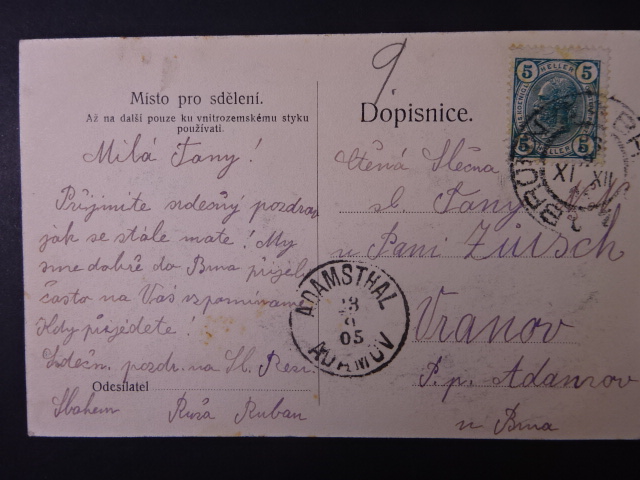 9.
Místo pro sdělení.
Až na další pouze ku vnitrozemskému styku
používati.
Milá Fany!
Přijměte srdečný pozdrav
jak se stále máte! My
sme dobře do Brna přijely
často na Vás vzpomínáme
Kdy přijedete!
Srdečn. pozdr. na Sl. Resi.
Odesílatel
Sbohem Ruša Ruban
Dopisnice.
Ctěná Slečna
sl. Fany
u Paní Zürsch
Vranov
P. p. Adamov
u Brna
5 HELLER 5
5 5
BRÜNN
XI XII
ADAMSTHAL
05
ADAMOV